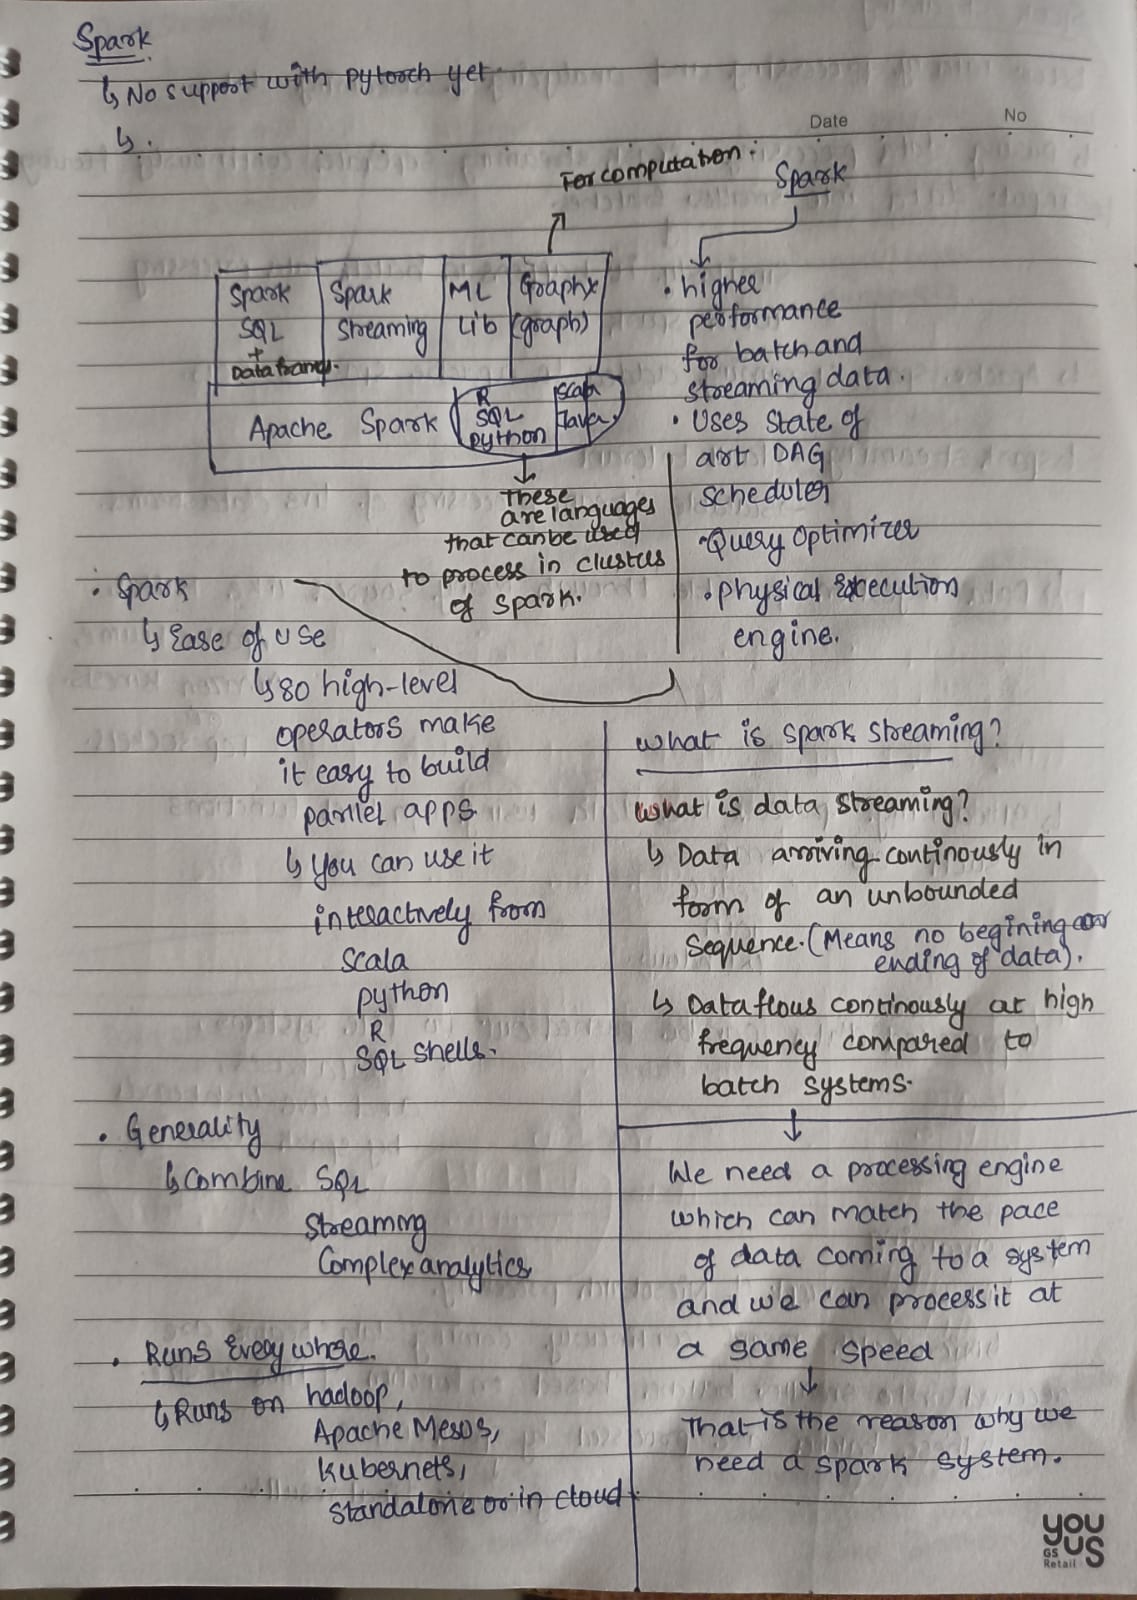 Spark
↳ No support with pytorch yet
↳ .
Date
No
For computation.
Spark
Spark
SQL
+
Dataframes.
Spark
streaming
ML
Lib
Graphx
(graph)
Apache Spark
R
SQL
python
Scala
Java
These
are languages
that can be used
to process in clusters
of spark.
• higher
performance
for batch and
streaming data.
• Uses State of
art DAG
scheduler
• Query Optimizer
• physical Execution
engine.
• Spark
↳ Ease of use
↳ 80 high-level
operators make
it easy to build
parllel apps
↳ You can use it
interactively from
Scala
python
R
SQL shells.
• Generality
↳ Combine SQL
Streaming
Complex analytics
• Runs Every where.
↳ Runs on hadoop,
Apache Mesos,
kubernets,
standalone or in cloud
What is spark streaming?
What is data streaming?
↳ Data arriving continously in
form of an unbounded
Sequence. (Means no begining or
ending of data).
↳ Data flous continously at high
frequency compared to
batch systems.
We need a processing engine
which can match the pace
of data coming to a system
and we can process it at
a same speed
That is the reason why we
need a spark system.
you
US
GS
Retail